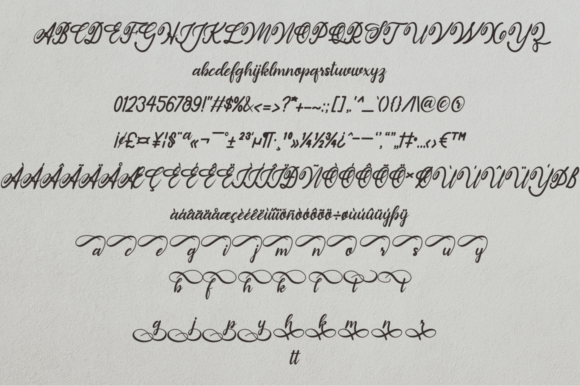 ABCDEFGHIJKLMNOPQRSTUVWXYZ
abcdefghijklmnopqrstuvwxyz
0123456789!"#$%&<=>?*+-~:;[],.'^_`(){}/\|@©®
¡¢£¤¥¦§¨ª«¬¯°±²³´µ¶·¸¹º»¼½¾¿ˆ–—‘’‚“”„†‡•…‹›€™
ÀÁÂÃÄÅÆÇÈÉÊËÌÍÎÏÐÑÒÓÔÕÖ×ØÙÚÛÜÝÞß
àáâãäåæçèéêëìíîïðñòóôõö÷øùúûüýþÿ
a c d e g i j m n o r s u v w x y
b f h k l t t
g j p y h k m n r
tt